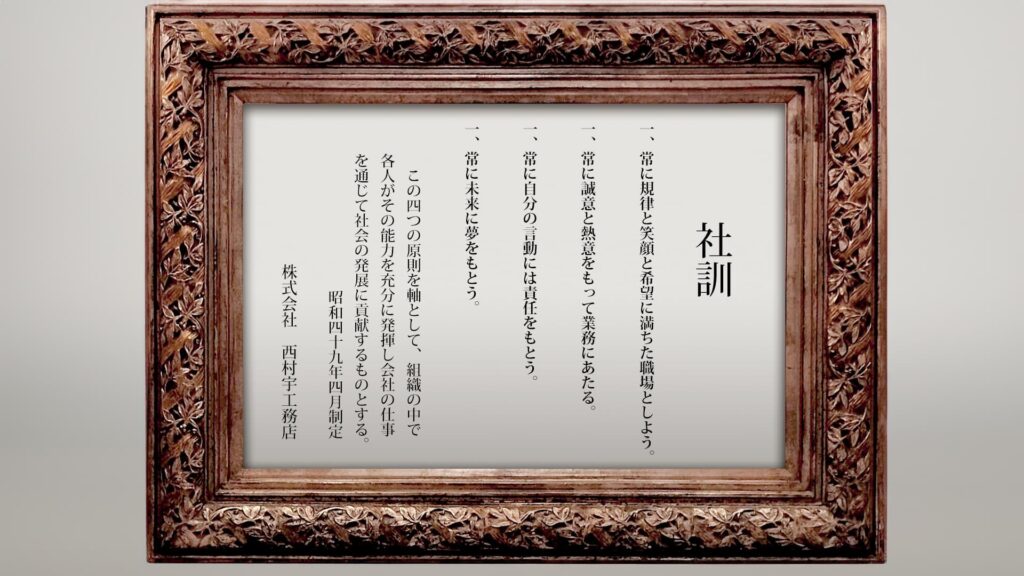 社訓
一、常に規律と笑顔と希望に満ちた職場としよう。
一、常に誠意と熱意をもって業務にあたる。
一、常に自分の言動には責任をもとう。
一、常に未来に夢をもとう。
この四つの原則を軸として、組織の中で
各人がその能力を充分に発揮し会社の仕事
を通じて社会の発展に貢献するものとする。
昭和四十九年四月制定
株式会社　西村宇工務店